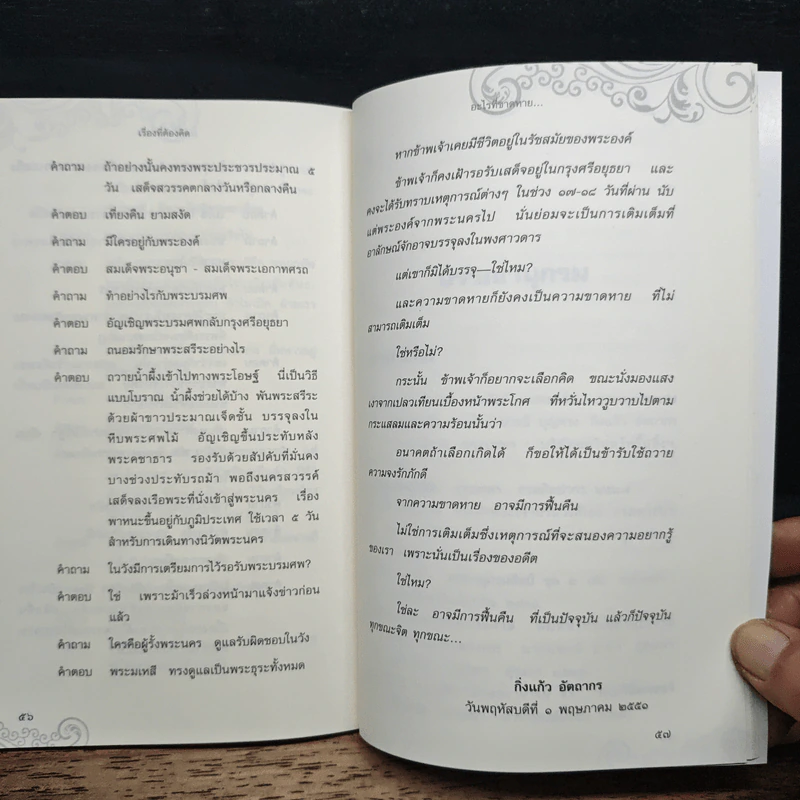 เรื่องที่ต้องคิด
คำถาม ถ้าอย่างนั้นคงทรงพระประชวรประมาณ ๕
วัน เสด็จสวรรคตกลางวันหรือกลางคืน
คำตอบ เที่ยงคืน ยามสงัด
คำถาม มีใครอยู่กับพระองค์
คำตอบ สมเด็จพระอนุชา - สมเด็จพระเอกาทศรถ
คำถาม ทำอย่างไรกับพระบรมศพ
คำตอบ อัญเชิญพระบรมศพกลับกรุงศรีอยุธยา
คำถาม ถนอมรักษาพระสรีระอย่างไร
คำตอบ ถวายน้ำผึ้งเข้าไปทางพระโอษฐ์ นี่เป็นวิธี
แบบโบราณ น้ำผึ้งช่วยได้บ้าง พันพระสรีระ
ด้วยผ้าขาวประมาณเจ็ดชั้น บรรจุลงใน
หีบพระศพไม้ อัญเชิญขึ้นประทับหลัง
พระคชาธาร รองรับด้วยสัปคับที่มั่นคง
บางช่วงประทับรถม้า พอถึงนครสวรรค์
เสด็จลงเรือพระที่นั่งเข้าสู่พระนคร เรื่อง
พาหนะขึ้นอยู่กับภูมิประเทศ ใช้เวลา ๕ วัน
สำหรับการเดินทางนิวัตพระนคร
คำถาม ในวังมีการเตรียมการไว้รอรับพระบรมศพ?
คำตอบ ใช่ เพราะม้าเร็วล่วงหน้ามาแจ้งข่าวก่อน
แล้ว
คำถาม ใครคือผู้รั้งพระนคร ดูแลรับผิดชอบในวัง
คำตอบ พระมเหสี ทรงดูแลเป็นพระธุระทั้งหมด
๕๖
อะไรที่ขาดหาย...
หากข้าพเจ้าเคยมีชีวิตอยู่ในรัชสมัยของพระองค์
ข้าพเจ้าก็คงเฝ้ารอรับเสด็จอยู่ในกรุงศรีอยุธยา และ
คงจะได้รับทราบเหตุการณ์ต่างๆ ในช่วง ๑๗-๑๘ วันที่ผ่าน นับ
แต่พระองค์จากพระนครไป นั่นย่อมจะเป็นการเติมเต็มที่
อาลักษณ์จักอาจบรรจุลงในพงศาวดาร
แต่เขาก็มิได้บรรจุ—ใช่ไหม?
และความขาดหายก็ยังคงเป็นความขาดหาย ที่ไม่
สามารถเติมเต็ม
ใช่หรือไม่?
กระนั้น ข้าพเจ้าก็อยากจะเลือกคิด ขณะนั่งมองแสง
เงาจากเปลวเทียนเบื้องหน้าพระโกศ ที่หวั่นไหววูบวาบไปตาม
กระแสลมและความร้อนนั้นว่า
อนาคตถ้าเลือกเกิดได้ ก็ขอให้ได้เป็นข้ารับใช้ถวาย
ความจงรักภักดี
จากความขาดหาย อาจมีการฟื้นคืน
ไม่ใช่การเติมเต็มซึ่งเหตุการณ์ที่จะสนองความอยากรู้
ของเรา เพราะนั่นเป็นเรื่องของอดีต
ใช่ไหม?
ใช่ละ อาจมีการฟื้นคืน ที่เป็นปัจจุบัน แล้วก็ปัจจุบัน
ทุกขณะจิต ทุกขณะ...
กิ่งแก้ว อัตถากร
วันพฤหัสบดีที่ ๑ พฤษภาคม ๒๕๕๑
๕๗